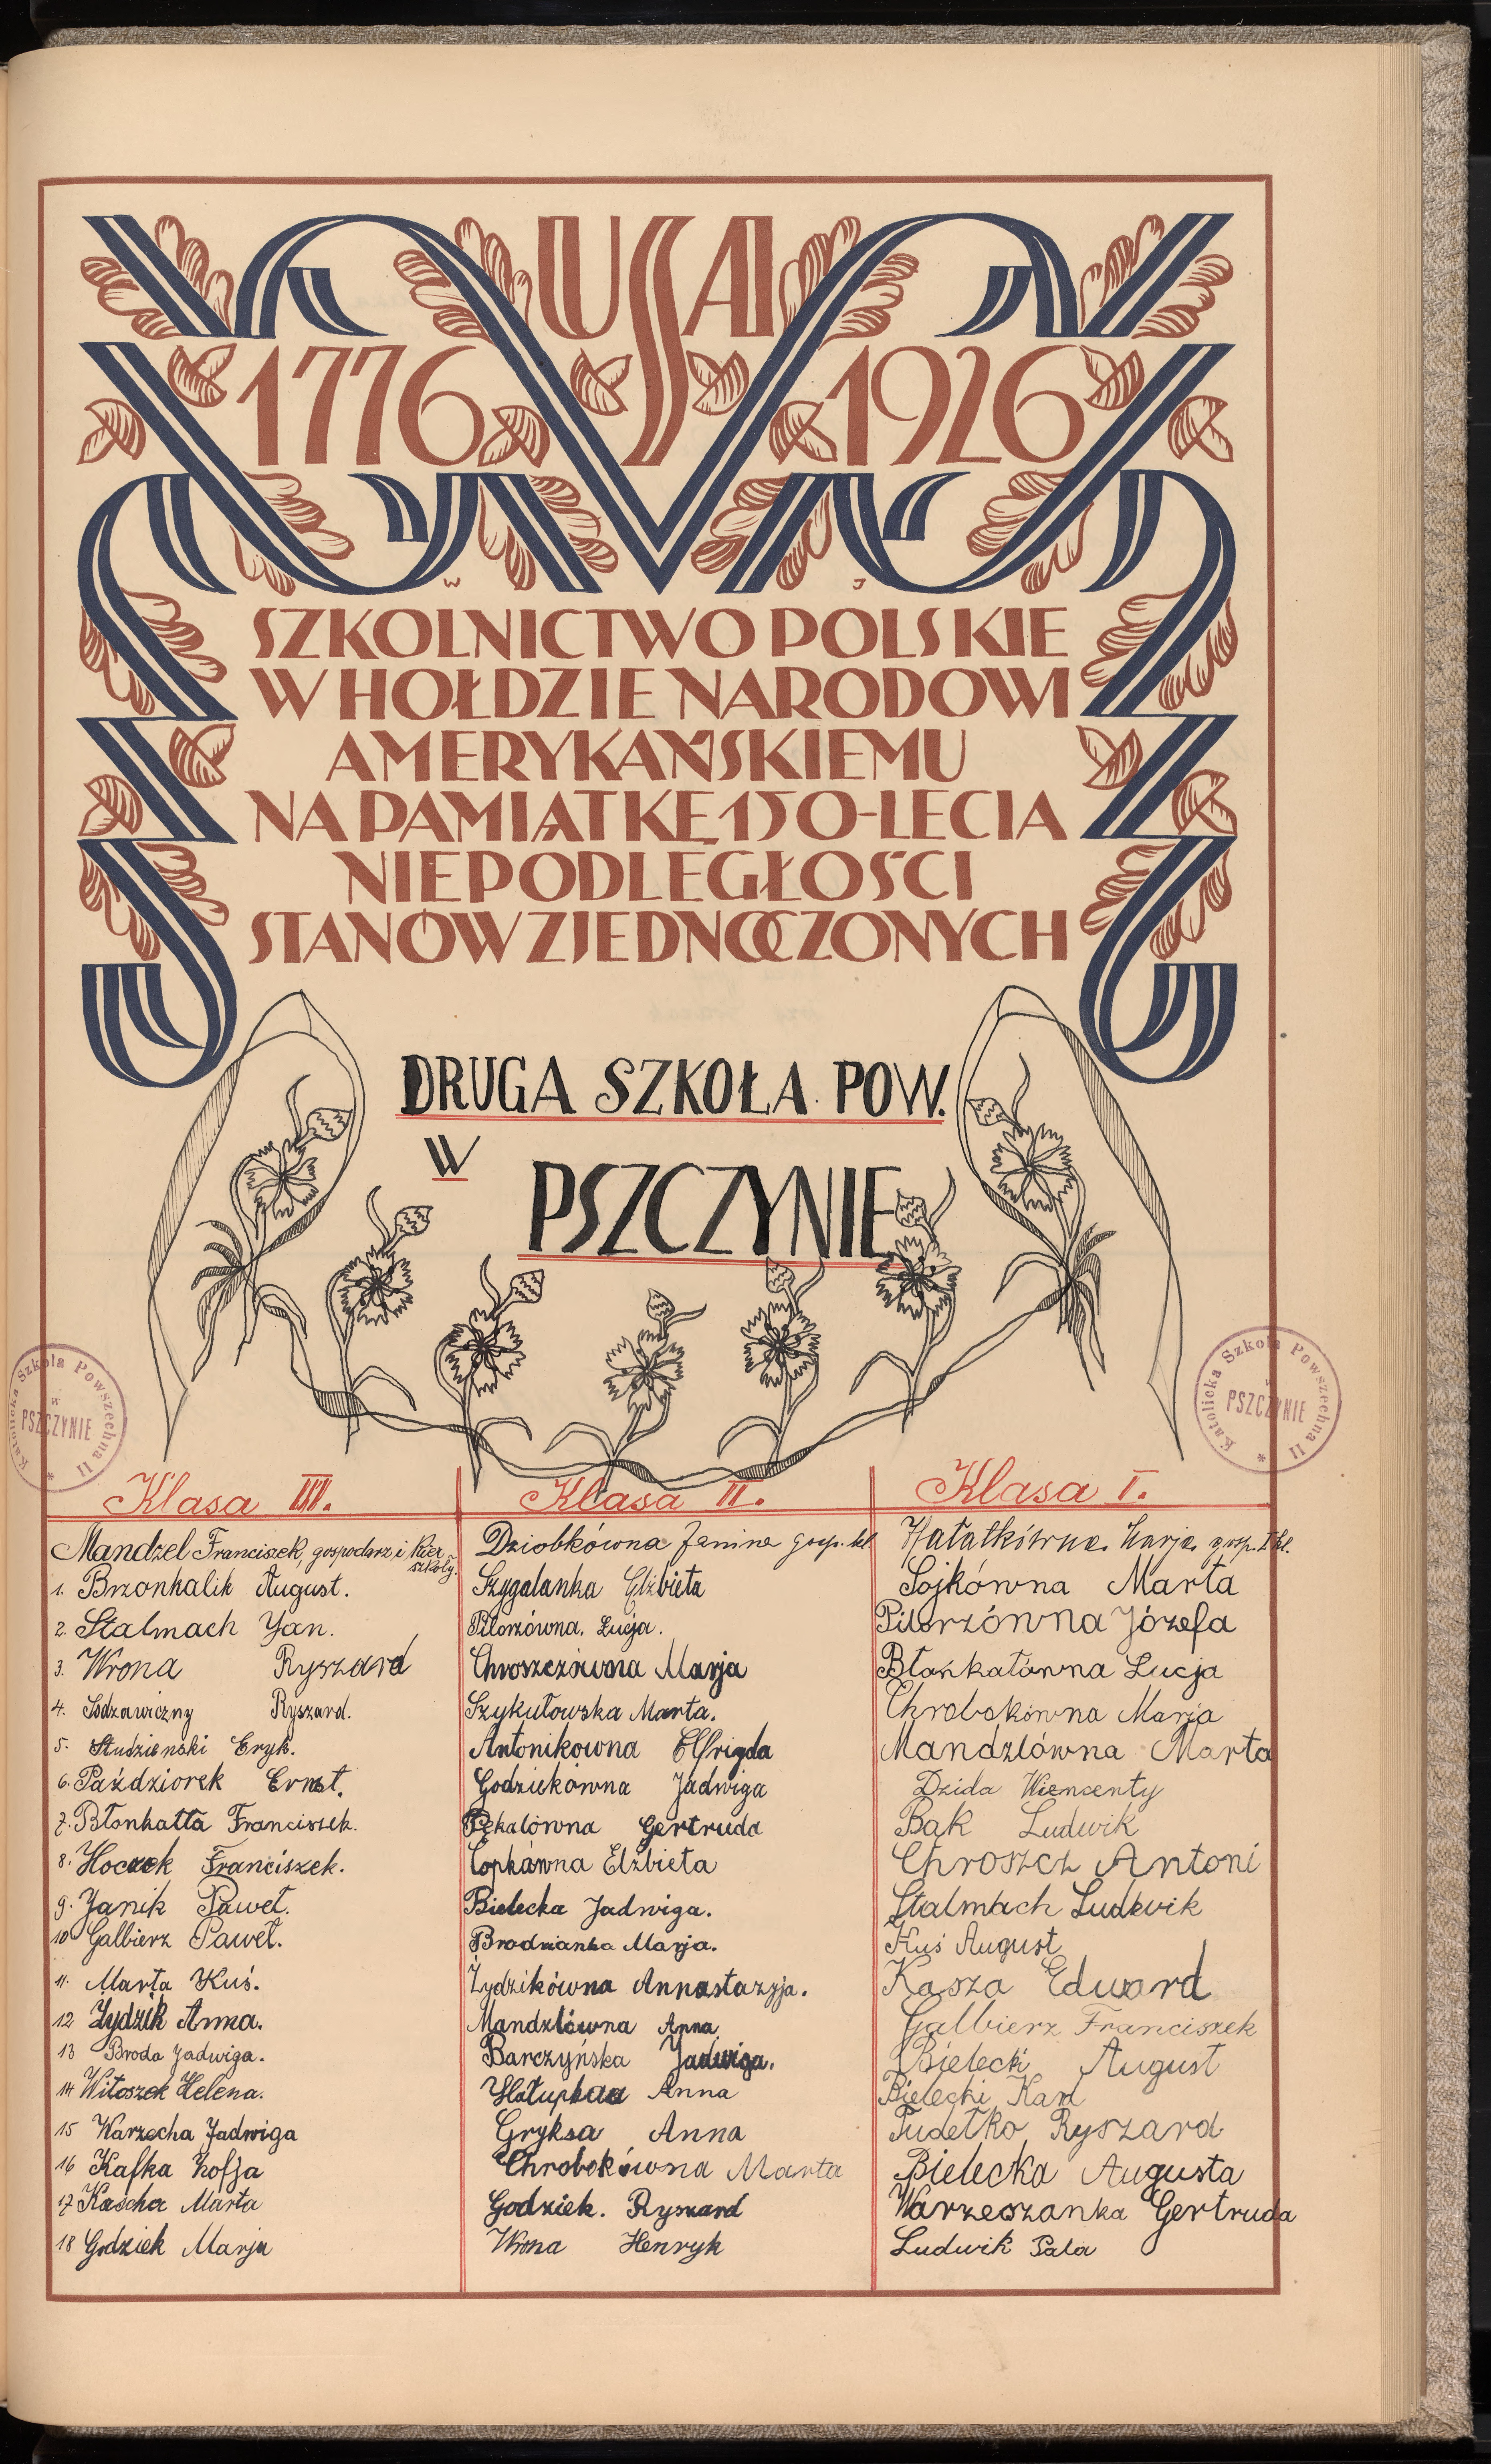 USA
1776 1926
W J
SZKOLNICTWO POLSKIE
W HOŁDZIE NARODOWI
AMERYKAŃSKIEMU
NA PAMIĄTKĘ 150-LECIA
NIEPODLEGŁOŚCI
STANÓW ZJEDNOCZONYCH
DRUGA SZKOŁA POW.
W
PSZCZYNIE
Katolicka Szkoła Powszechna II
w
PSZCZYNIE
Katolicka Szkoła Powszechna II
w
PSZCZYNIE
Klasa III.
Mandzel Franciszek, gospodarz i kier. szkoły.
1. Brzonkalik August.
2. Stalmach Jan.
3. Wrona Ryszard
4. Sodzawiczny Ryszard.
5. Studzieński Eryk.
6. Paździorek Ernst.
7. Błonkatta Franciszek.
8. Hoczek Franciszek.
9. Janik Paweł.
10 Galbierz Paweł.
11. Marta Kuś.
12 Żydzik Anna.
13 Broda Jadwiga.
14 Witoszek Helena.
15 Warzecha Jadwiga
16 Kafka Zofja
17 Kascha Marta
18 Godziek Marja
Klasa II.
Dziobkówna Janina gosp. kl
Szygalanka Elżbieta
Pilorzówna, Łucja.
Chroszczówna Marja
Szykułowska Marta.
Antonikowna Elfrigda
Godziekówna Jadwiga
Pękalówna Gertruda
Copkówna Elżbieta
Bielecka Jadwiga.
Brodzianka Marja.
Żydzikówna Annastazyja.
Mandzlówna Anna
Barczyńska Jadwiga.
Anna
Gryksa Anna
Chrobokówna Marta
Godziek. Ryszard
Wrona Henryk
Klasa I.
Hatatkówna Marja gosp. I kl.
Sojkówna Marta
Pilorzówna Józefa
Błońkatówna Łucja
Chrobokówna Marja
Mandzlówna Marta
Dzida Wiencenty
Bąk Ludwik
Chroszcz Antoni
Stalmach Ludwik
Kuś August
Kasza Edward
Galbierz Franciszek
Bielecki August
Bielecki Karl
Pudełko Ryszard
Bielecka Augusta
Warzeszanka Gertruda
Ludwik Pala